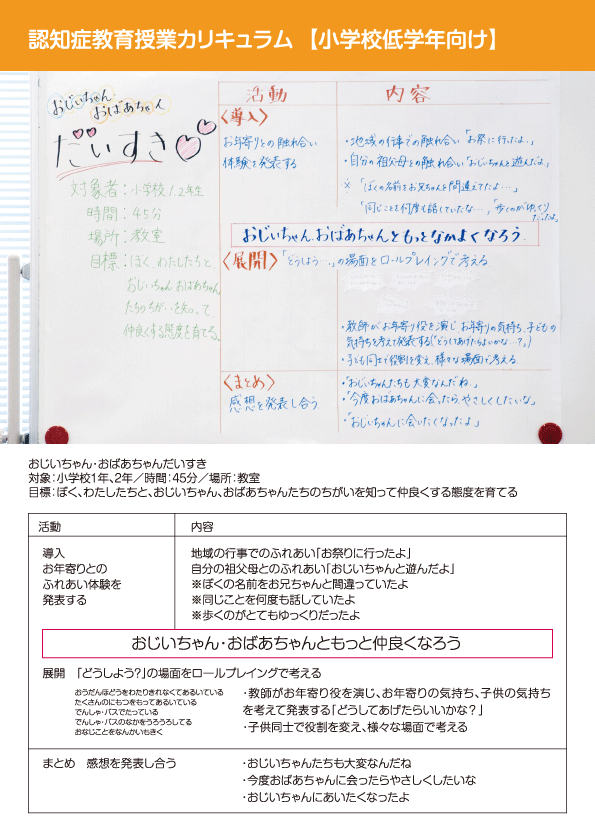 認知症教育授業カリキュラム 【小学校低学年向け】
おじいちゃん
おばあちゃん
だいすき
対象者：小学校1.2年生
時間：45分
場所：教室
目標：ぼく、わたしたちと、
おじいちゃん おばあちゃん
たちのちがいを知って、
仲良くする態度を育てる。
活動 内容
〈導入〉
お年寄りとの触れ合い
体験を発表する
・地域の行事での触れ合い「お祭に行ったよ。」
・自分の祖父母との触れ合い「おじいちゃんと遊んだよ。」
※「ぼくの名前をお兄ちゃんと間違えてたよ…。」
「同じことを何度も話していたな…」,「歩くのがゆっくり
だったよ」
おじいちゃん、おばあちゃんともっとなかよくなろう。
〈展開〉「どうしよう…。」の場面をロールプレイングで考える
・教師がお年寄り役を演じ、お年寄りの気持ち、子どもの
気持ちを考えて発表する(「どうしてあげたらよいかな…?。」)
・子ども同士で役割を変え、様々な場面で考える
〈まとめ〉
感想を発表し合う
・「おじいちゃんたちも大変なんだね。」
・「今度おばあちゃんに会ったら、やさしくしたいな」
・「おじいちゃんに会いたくなったよ」
おじいちゃん・おばあちゃんだいすき
対象：小学校1年、2年／時間：45分／場所：教室
目標：ぼく、わたしたちと、おじいちゃん、おばあちゃんたちのちがいを知って仲良くする態度を育てる
活動 内容
導入
お年寄りとの
ふれあい体験を
発表する
地域の行事でのふれあい「お祭りに行ったよ」
自分の祖父母とのふれあい「おじいちゃんと遊んだよ」
※ぼくの名前をお兄ちゃんと間違っていたよ
※同じことを何度も話していたよ
※歩くのがとてもゆっくりだったよ
おじいちゃん・おばあちゃんともっと仲良くなろう
展開 「どうしよう?」の場面をロールプレイングで考える
おうだんほどうをわたりきれなくてあるいている
たくさんのにもつをもってあるいている
でんしゃ・バスでたっている
でんしゃ・バスのなかをうろうろしてる
おなじことをなんかいもきく
・教師がお年寄り役を演じ、お年寄りの気持ち、子供の気持ち
を考えて発表する「どうしてあげたらいいかな？」
・子供同士で役割を変え、様々な場面で考える
まとめ 感想を発表し合う
・おじいちゃんたちも大変なんだね
・今度おばあちゃんに会ったらやさしくしたいな
・おじいちゃんにあいたくなったよ